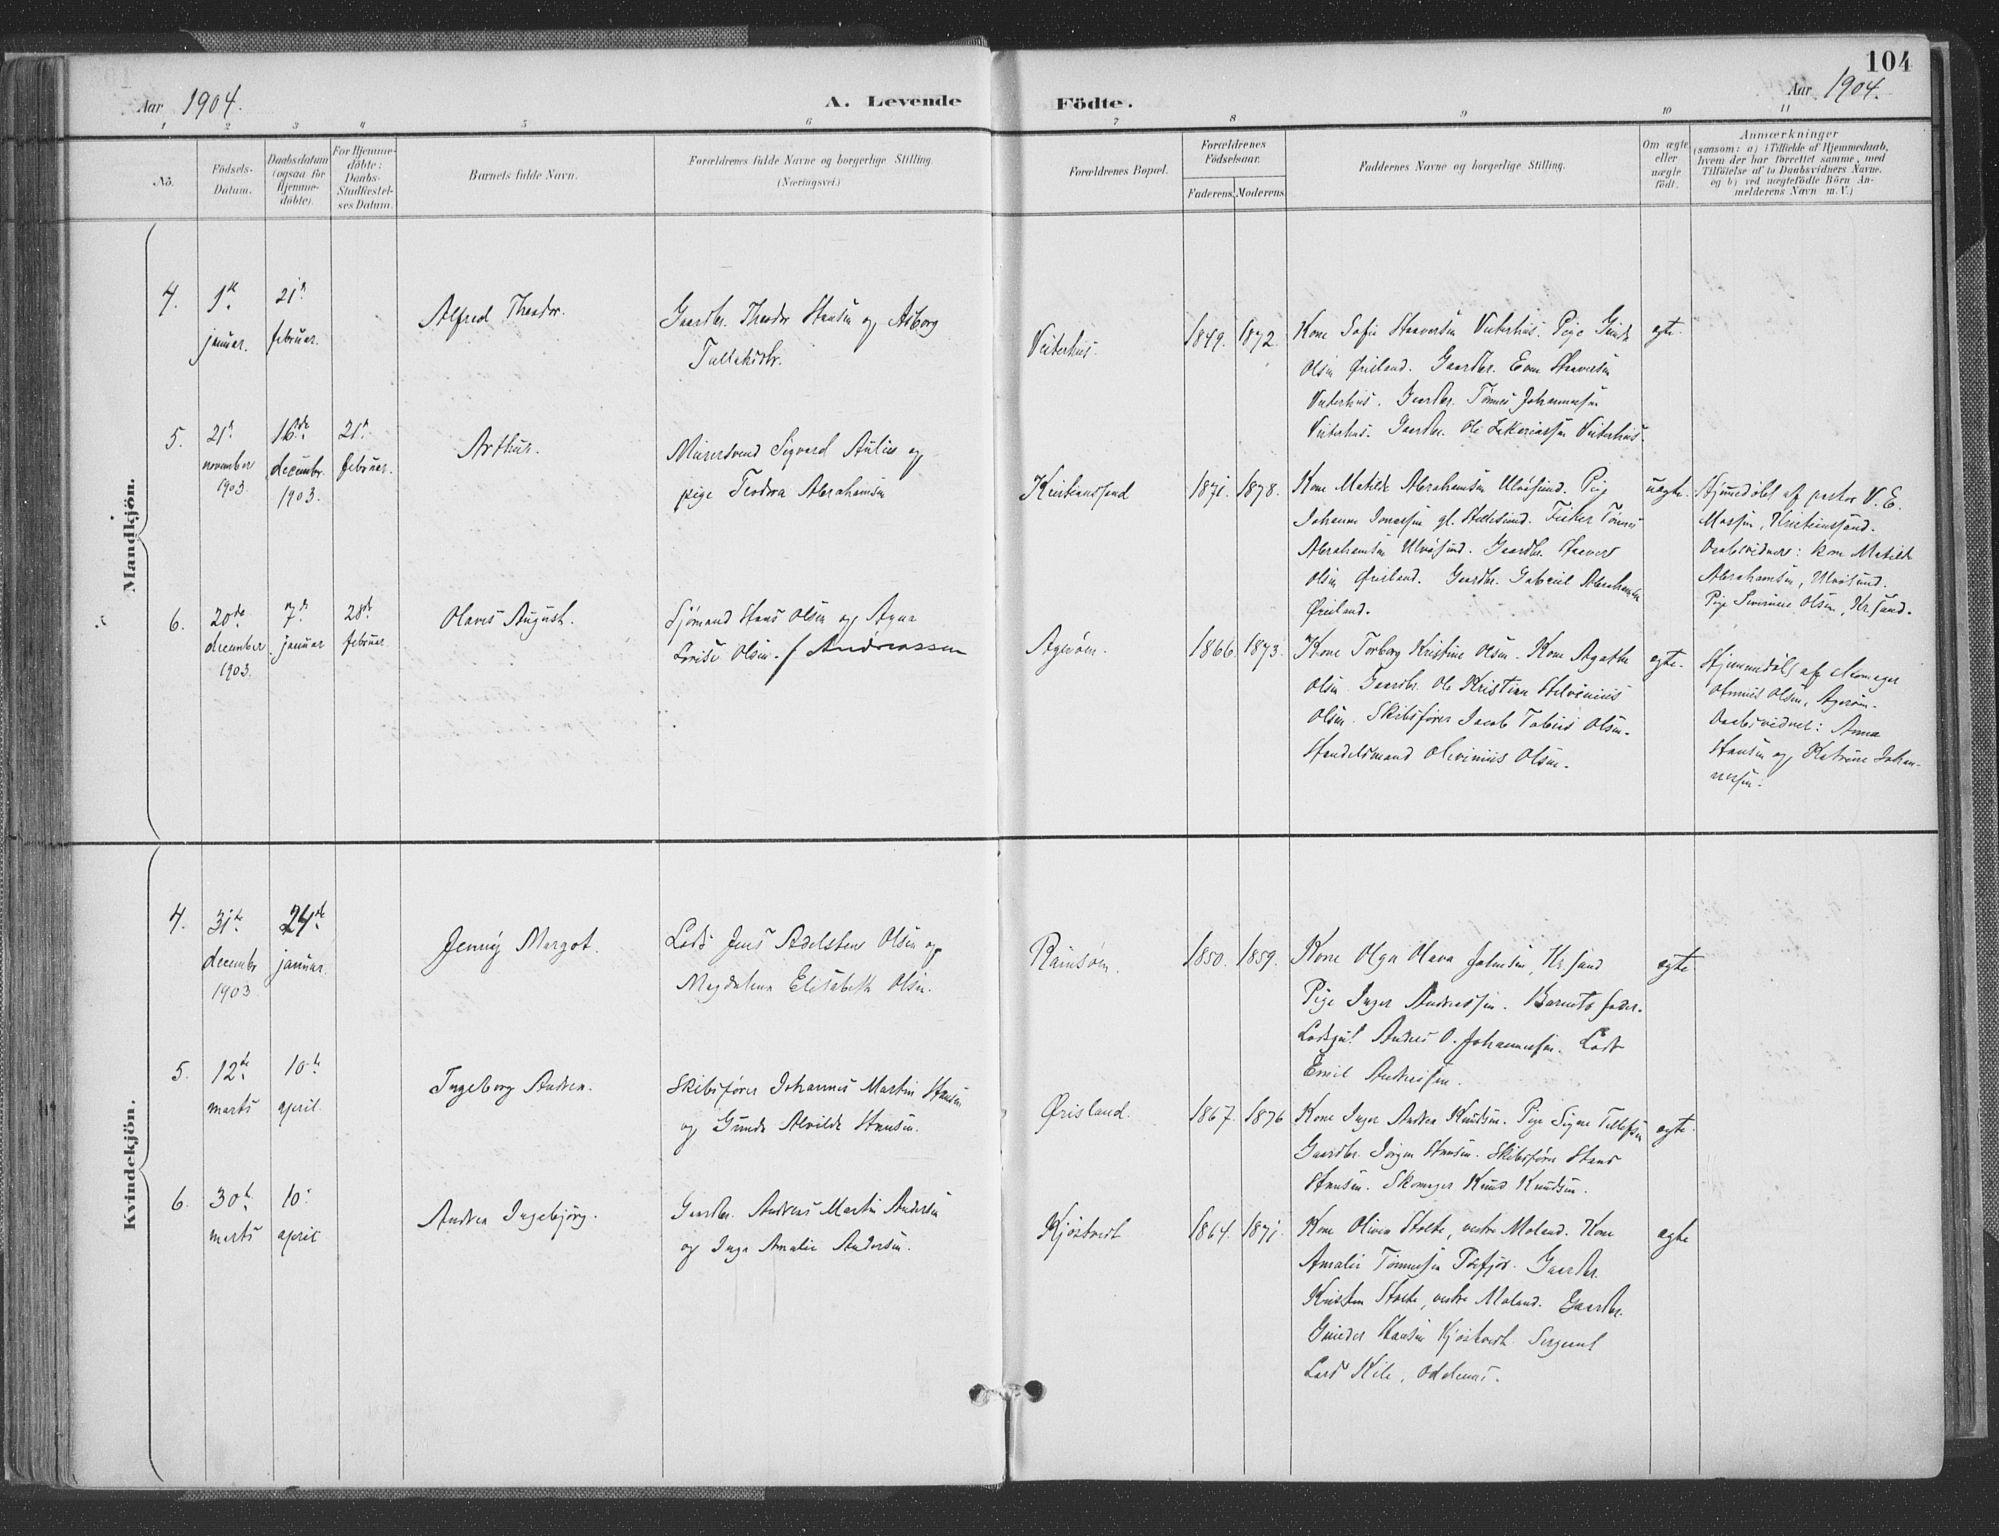 104
Aar 1904.
A. Levende Födte.
Aar 1904.
1 2 3 4 5 6 7 8 9 10 11
No.
Födsels-
Datum.
Daabsdatum
(ogsaa for
Hjemme-
döbte).
For Hjemme-
döbte:
Daabs-
Stadfæstel-
ses Datum.
Barnets fulde Navn.
Forældrenes fulde Navne og borgerlige Stilling.
(Næringsvei.)
Forældrenes Bopæl.
Forældrenes
Födselsaar.
Faderens Moderens
Faddernes Navne og borgerlige Stilling.
Om ægte
eller
uægte
födt.
Anmærkninger
(saasom: a) i Tilfælde af Hjemmedaab,
hvem der har forrettet samme, med
Tilföielse af to Daabsvidners Navne.
og b) ved uægtefödte Börn An-
melderens Navn m. V.)
Mandkjön.
4.
1ste
januar.
21de
februar.
Alfred Theodor.
Gaardbr. Theodor Hansen og Asborg
Tallaksdtr.
Vesterhus.
1849. 1872.
Kone Sofie Haaversen Vesterhus. Pige Gunda
Olsen Ørisland. Gaardbr. Even Haaversen
Vesterhus. Gaardbr. Tønnes Johannesen
Vesterhus. Gaardbr. Ole Zakariassen Vesterhus.
egte.
5.
21de
november
1903
16de
decembr.
1903.
21de
februar.
Arthur.
Murersvend Sigvard Aulie og
pige Teodora Abrahamsen
Kristianssand
1871. 1878.
Kone Matilde Abrahamsen Ulvøsund. Pige
Johanne Jonassen gl. Hellesund. Fisker Tønnes
Abrahamsen Ulvøsund. Gaardbr. Haaver
Olsen Ørisland. Gaardbr. Gabriel Abrahamsen
Ørisland.
uegte.
Hjemmedøbt af pastor V. E.
Kristianssand.
Daabsvidner: kone Matilde
Abrahamsen, Ulvøsund.
Pige Severine Olsen, Kr.sand.
6.
20de
december
1903.
7de
januar
28de
februar
Olavus August.
Sjømand Hans Olsen og Agna
Lovise Olsen. f Andreassen
Agerøen.
1866. 1873.
Kone Torborg Kristine Olsen. Kone Agathe
Olsen. Gaardbr. Ole Kristian
Olsen. Skibsfører Jacob Tobias Olsen.
Handelsmand Olivinius Olsen.
egte.
Hjemmedøbt af skomager
Olsen, Agerøen.
Daabsvidner: Anna
Hansen og Katrine Johan-
nesen.
Kvindekjön.
4.
31te
decembr
1903
24de
januar.
Jenny Margot.
Lods Jens Adelsten Olsen og
Magdalena Elisabeth Olsen.
Ramsøen.
1850. 1859.
Kone Olga Olava Johnsen, Kr.sand
Pige Inger Andreassen. Barnets fader.
Andreas O. Johannessen. Lods
Emil Andreassen.
egte
5.
12te
marts
10de
april.
Ingeborg Andrea.
Skibsfører Johannes Martin Hansen
og Gunda Alvilde Hansen.
Ørisland.
1867. 1876
Kone Inger Andrea Knudsen. Pige Signe Tellefsen
Gaardbr. Jörgen Hansen. Skibsfører Hans
Hansen. Skomager Knud Knudsen.
egte.
6.
30te
marts
10.
april
Andrea Ingebjørg.
Gaardbr. Andreas Martin Andersen
og Inga Amalie Andersen.
Kjøstvedt
1864. 1871.
Kone Olivia Stølte, vestre Moland. Kone
Amalie Tønnessen. Gaardbr.
Kristen Stølte, vestre Moland. Gaardbr.
Hansen Kjøstvedt. Sergeant
Lars Kile, Oddernes.
egte